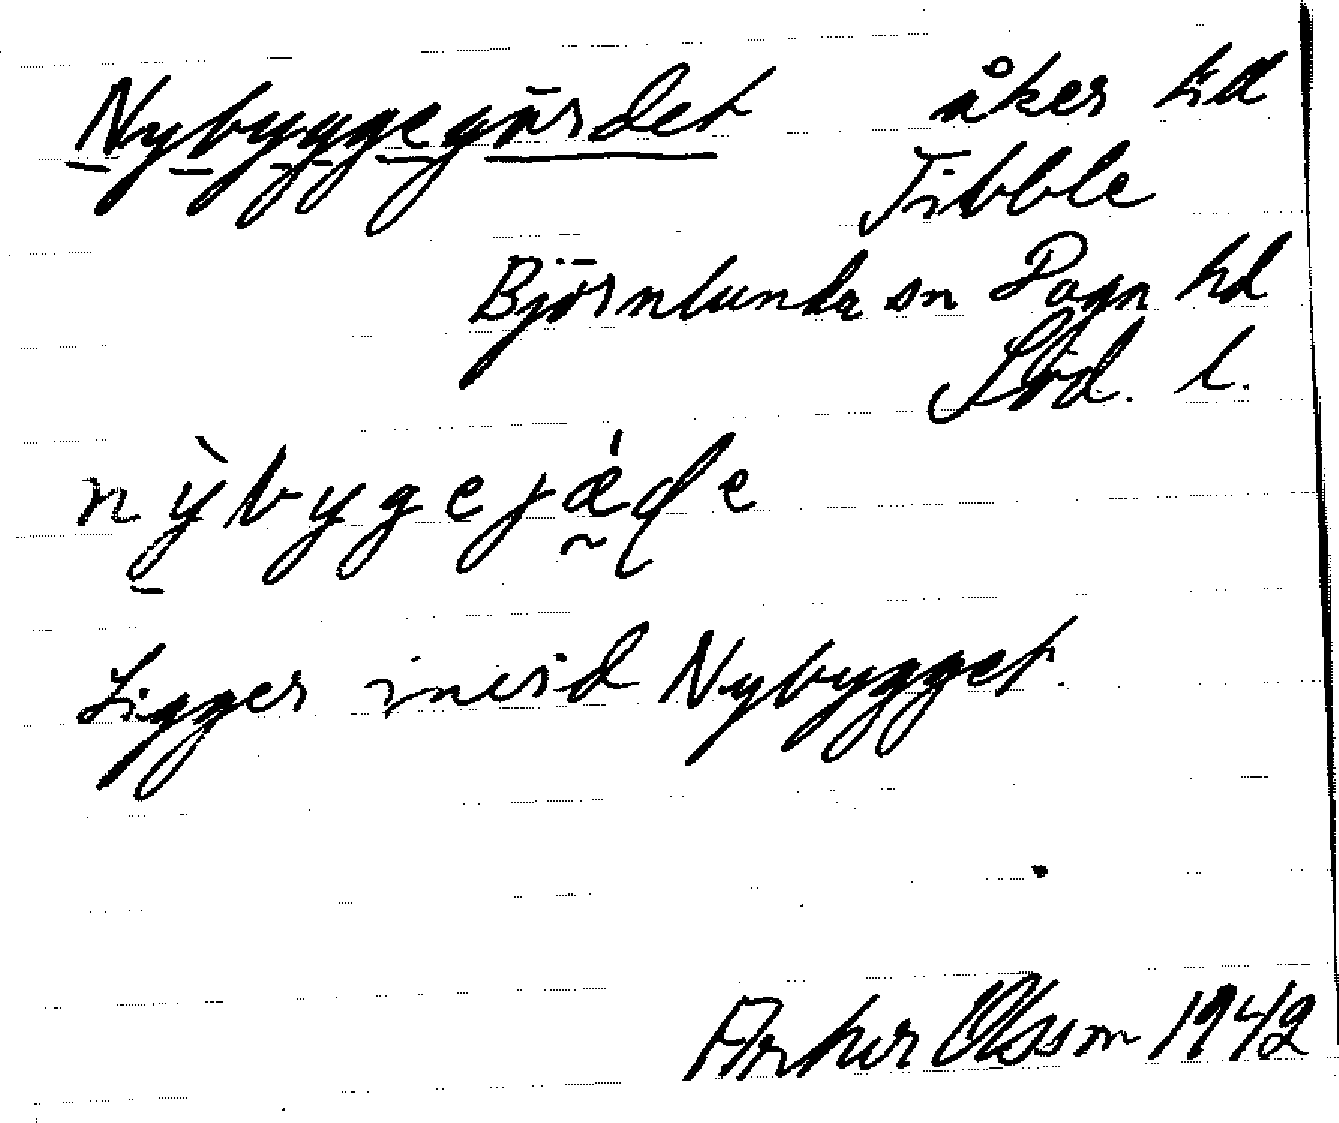 Nybyggegärdet åker hd
Tibble
Björnlunda sn Daga hd
Söd. l.
nỳbygejǽɖe
Ligger invid Nybygget.
Arthur Olsson 1942